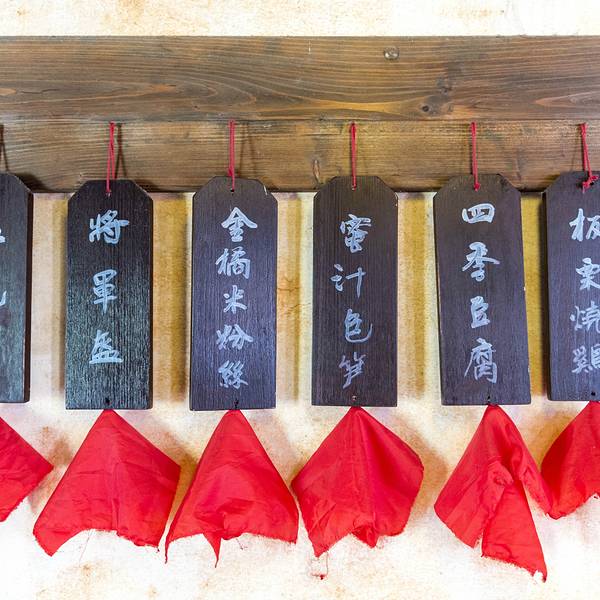 將軍盔
金橘米粉絲
蜜汁包笋
四季豆腐
板栗燒鷄